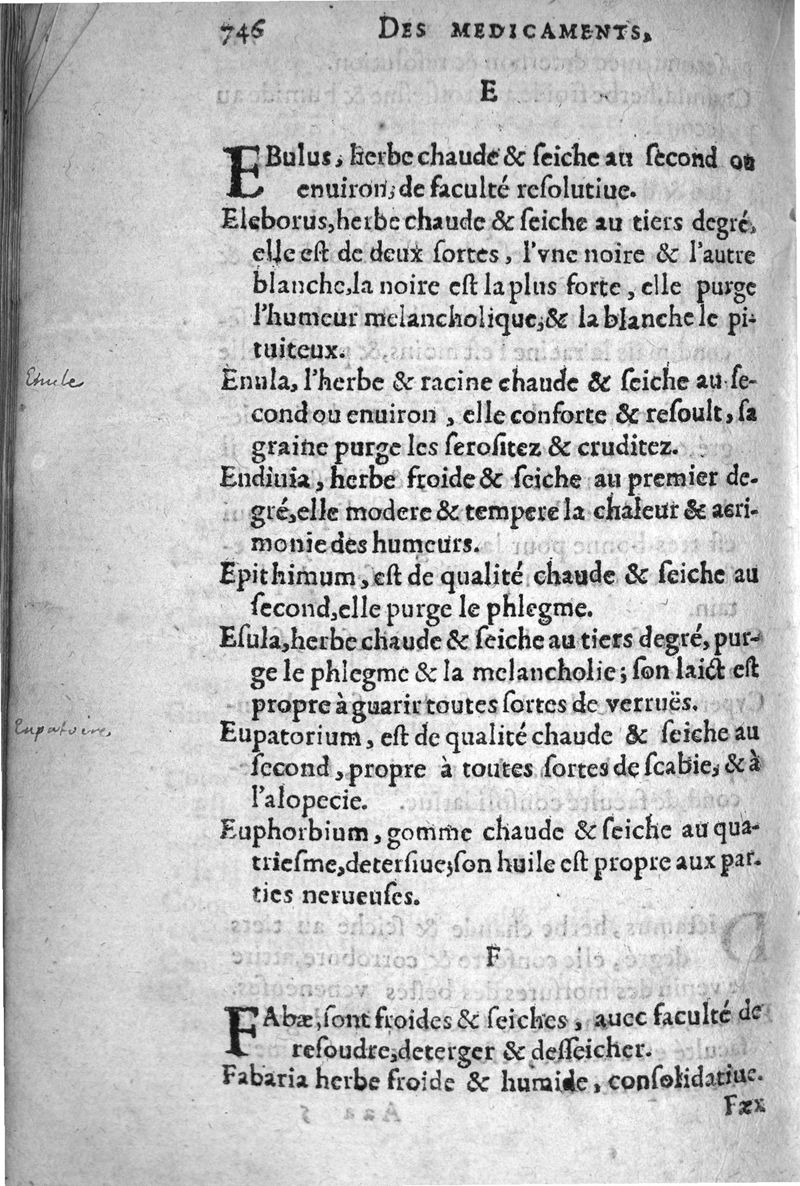 746 DES MEDICAMENTS,
E
EBulus, herbe chaude & ſeiche au ſecond ou
enuiron, de faculté reſolutiue.
Eleborus, herbe chaude & ſeiche au tiers degré,
elle eſt de deux ſortes, l'vne noire & l'autre
blanche, la noire eſt la plus forte, elle purge
l'humeur melancholique, & la blanche le pi-
tuiteux.
Enule
Enula, l'herbe & racine chaude & ſeiche au ſe-
cond ou enuiron, elle conforte & reſoult, ſa
graine purge les ſeroſitez & cruditez.
Endiuia, herbe froide & ſeiche au premier de-
gré, elle modere & tempere la chaleur & acri-
monie des humeurs.
Epithimum, eſt de qualité chaude & ſeiche au
ſecond, elle purge le phlegme.
Eſula, herbe chaude & ſeiche au tiers degré, pur-
ge le phlegme & la melancholie; ſon laict eſt
propre à guarir toutes ſortes de verruës.
Eupatoire,
Eupatorium, eſt de qualité chaude & ſeiche au
ſecond, propre à toutes ſortes de ſcabie, & à
l'alopecie.
Euphorbium, gomme chaude & ſeiche au qua-
trieſme, deterſiue; ſon huile eſt propre aux par-
ties nerueuſes.
F
FAbæ, ſont froides & ſeiches, auec faculté de
reſoudre, deterger & deſſeicher.
Fabaria herbe froide & humide, conſolidatiue.
Fæx